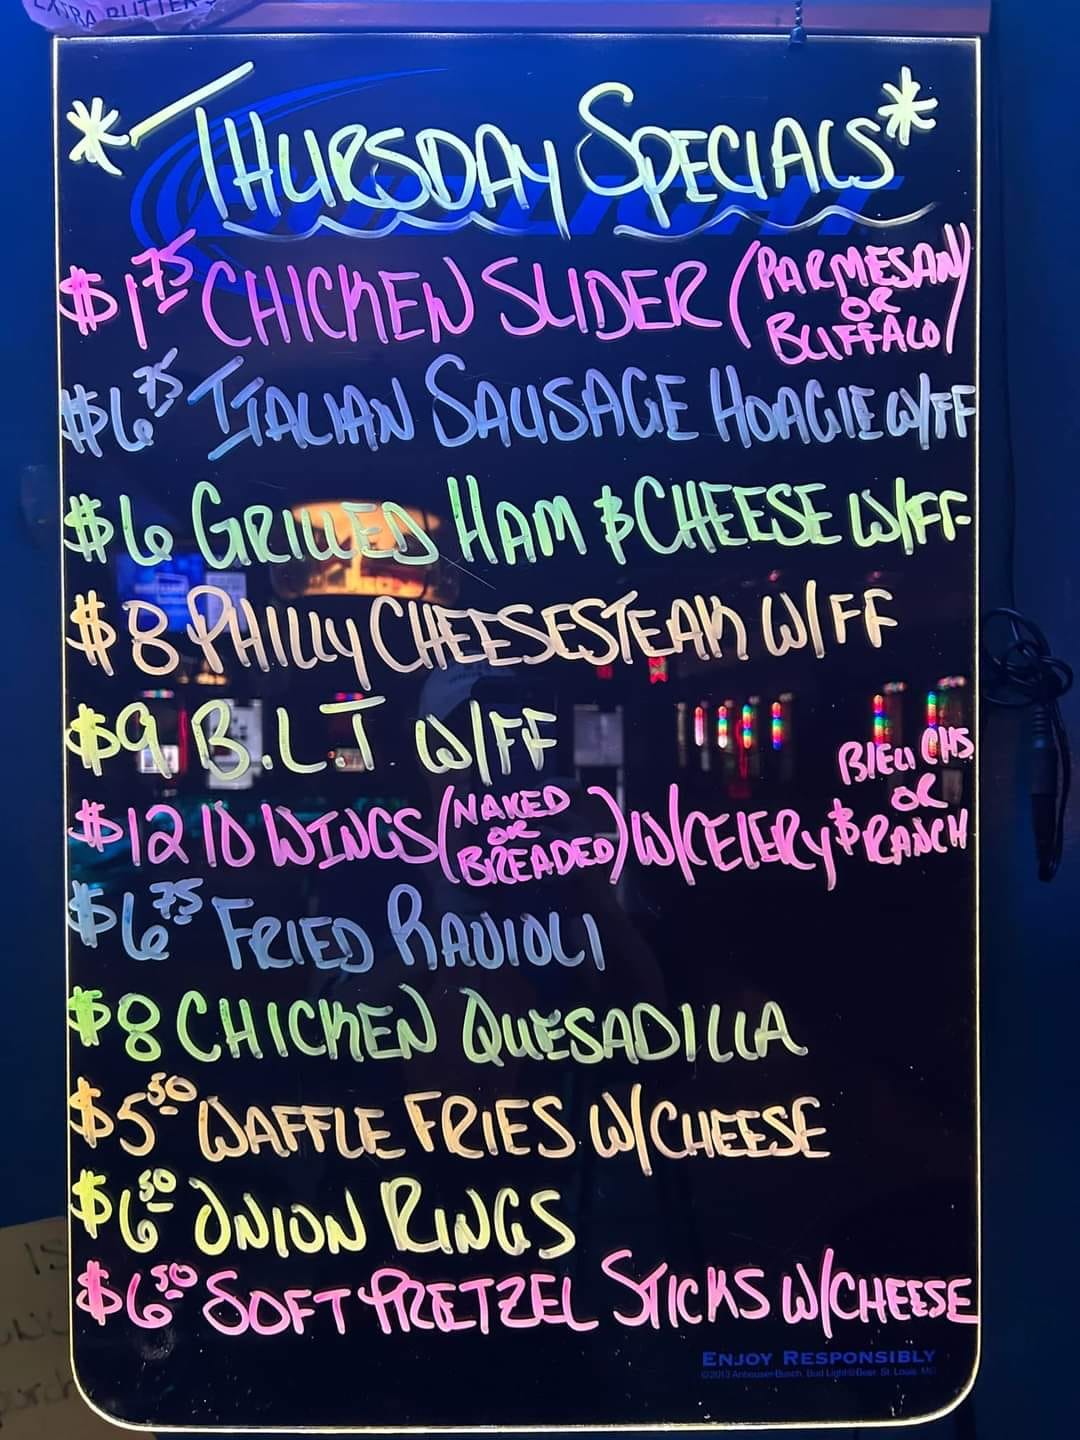 EXTRA BUTTER
* THURSDAY SPECIALS *
$1.75 CHICKEN SLIDER (PARMESAN OR BUFFALO)
$6.75 ITALIAN SAUSAGE HOAGIE W/FF
$6 GRILLED HAM & CHEESE W/FF
$8 PHILLY CHEESESTEAK W/FF
$9 B.L.T W/FF
$12 10 WINGS (NAKED OR BREADED) W/CELERY & BLEU CHS OR RANCH
$6.75 FRIED RAVIOLI
$8 CHICKEN QUESADILLA
$5.50 WAFFLE FRIES W/CHEESE
$6.50 ONION RINGS
$6.50 SOFT PRETZEL STICKS W/CHEESE
ENJOY RESPONSIBLY
©2013 Anheuser-Busch, Bud Light® Beer, St. Louis, MO